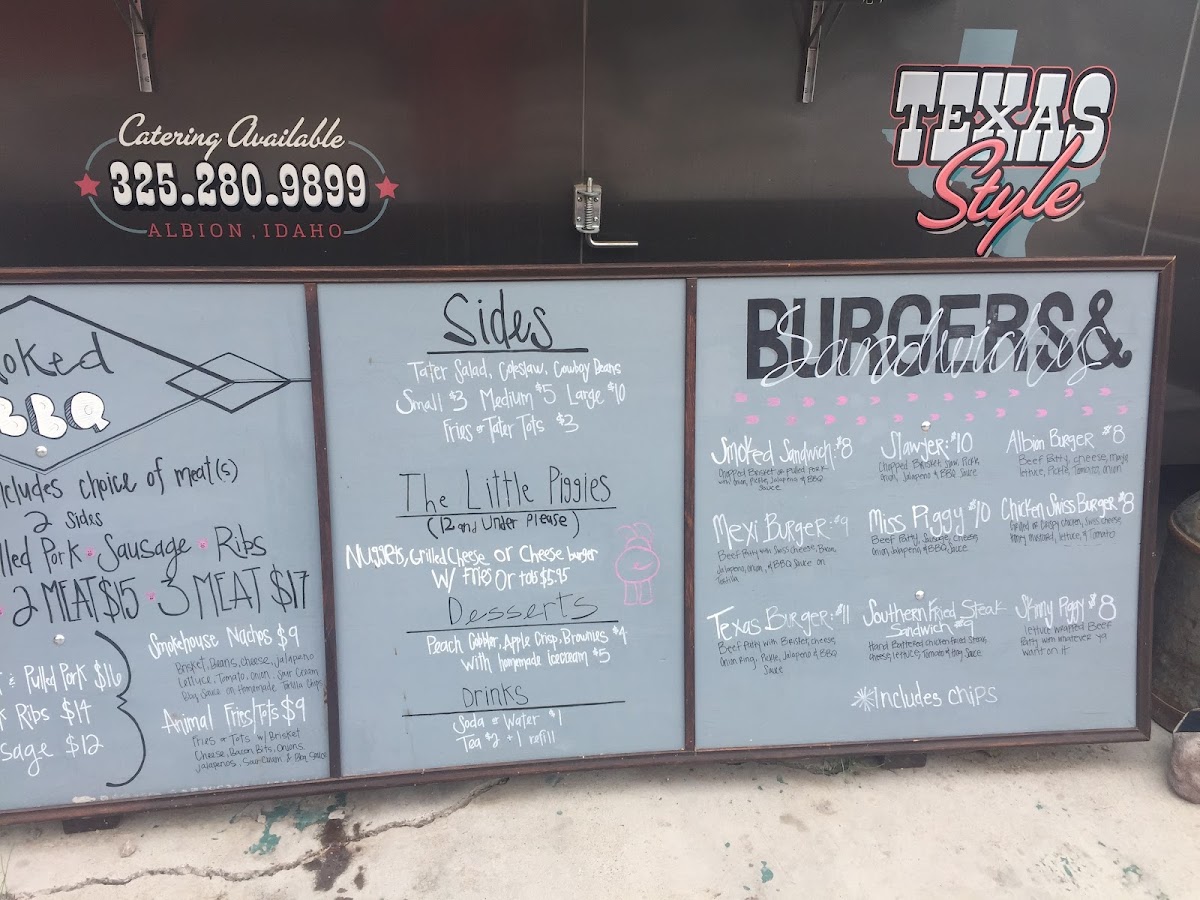 Catering Available
325.280.9899
ALBION, IDAHO
TEXAS
Style
BBQ
choice of meat(s)
2 sides
Pork Sausage Ribs
2 MEAT $15 3 MEAT $17
& Pulled Pork $16
Ribs $14
$12
Smokehouse Nachos $9
Brisket, Beans, cheese, Jalapeno
Lettuce, Tomato, onion, Sour Cream
Bbq Sauce on Homemade Tortilla Chips
Animal Fries/Tots $9
Fries or Tots w/ Brisket
Cheese, Bacon Bits, Onions,
Jalapenos, Sour Cream & Bbq Sauce
Sides
Tater Salad, Coleslaw, Cowboy Beans
Small $3 Medium $5 Large $10
Fries or Tater Tots $3
The Little Piggies
(12 and Under Please)
Nuggets, Grilled Cheese or Cheese burger
w/ Fries Or tots $5.95
Desserts
Peach Cobbler, Apple Crisp, Brownies $4
with homemade icecream $5
Drinks
Soda or Water $1
Tea $2 + 1 refill
BURGERS &
Sandwiches
Smoked Sandwich: $8
Chopped Brisket or Pulled pork
with onion, Pickle, Jalapeno & BBQ
Sauce
Slawyer: $10
Chopped Brisket, Slaw, Pickle,
Onion, Jalapeno & BBQ Sauce
Albion Burger $8
Beef Patty, cheese, mayo
lettuce, Pickle, Tomato, onion
Mexi Burger: $9
Beef Patty with Swiss Cheese, Bacon,
Jalapeno, onion, & BBQ Sauce on
Tortilla
Miss Piggy $10
Beef Patty, Sausage, cheese,
Onion, Jalapeno & BBQ Sauce
Chicken Swiss Burger $8
Grilled or Crispy chicken, Swiss cheese
honey mustard, lettuce, & Tomato
Texas Burger: $11
Beef Patty with Brisket, cheese,
Onion Ring, Pickle, Jalapeno & BBQ
Sauce
Southern Fried Steak
Sandwich $9
Hand Battered chicken fried Steak
cheese, lettuce, Tomato & Sauce
Skinny Piggy $8
lettuce wrapped Beef
Patty with whatever ya
want on it
*Includes chips